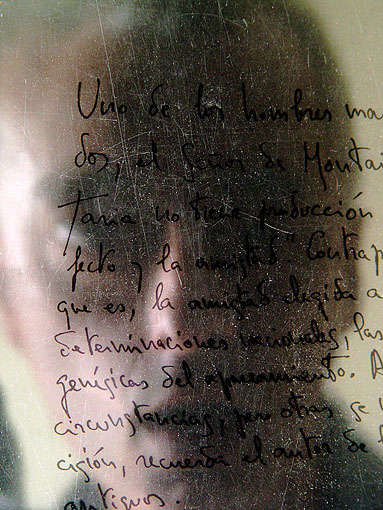 Uno de los hombres ma
dos, el Señor de Montai
taria no tiene producción
fecto y la amistad" Contrap
que es, la amistad elegida a
determinaciones nacionales, las
genésicas del apareamiento. A
circunstancias, pero otras se
cisión, recuerda el autor de
antiguos.